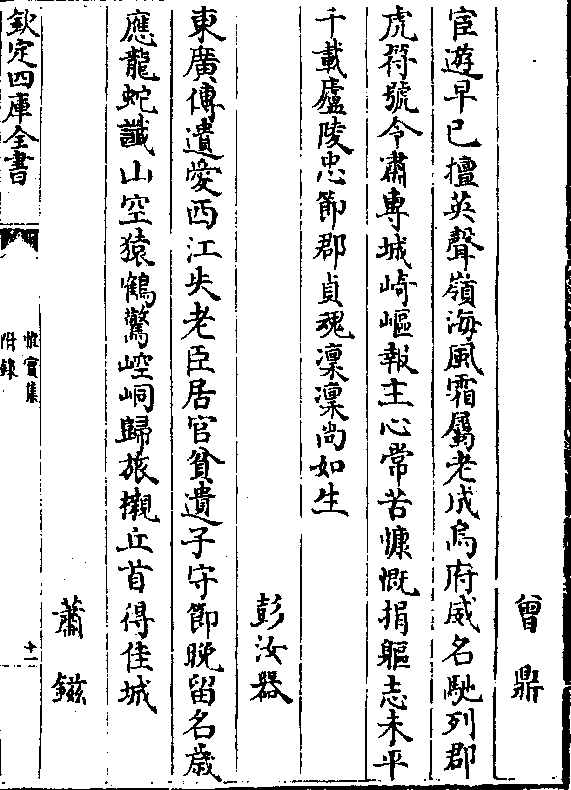 曾鼎
宦遊早已擅英聲嶺海風霜屬老成烏府威名馳列郡
虎符號令肅專城崎嶇報主心常苦慷慨捐軀志未平
千載廬陵忠節郡貞魂凛凛尚如生
彭汝器
東廣傳遺愛西江失老臣居官貧遺子守節晚留名歲
應龍蛇讖山空猿鶴驚崆峒歸旅櫬丘首得佳城
蕭鎡
欽定四庫全書
惟實集
附錄
十一